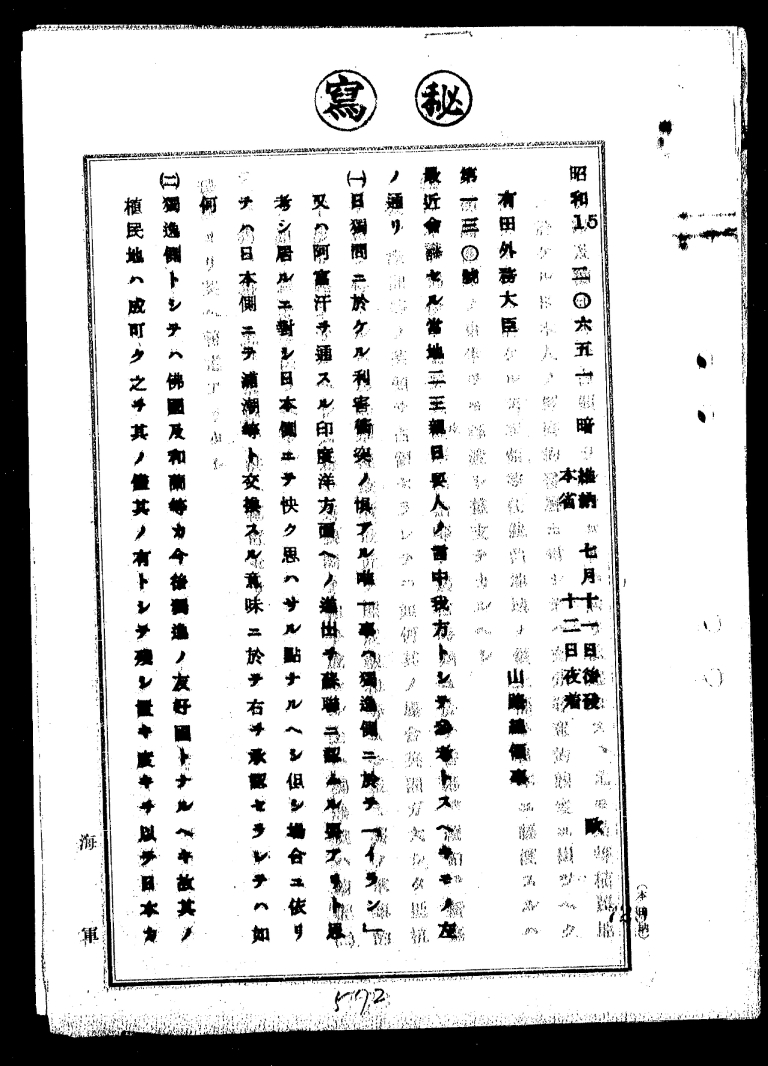 秘
寫
昭和15 二〇六五一 暗 維納 七月十一日後發 歐
本省 十二日夜着
有田外務大臣 山路總領事
第一三〇號
最近會談セル當地二三親日要人ノ言中我方トシテ參考トスヘキモノ左
ノ通リ
(一)日獨間ニ於ケル利害衝突ノ惧アル唯一事ハ獨逸側ニ於テ「イラン」
又ハ阿富汗ヲ通スル印度洋方面ヘノ進出ヲ蘇聯ニ認ムル要アリト思
考シ居ルニ對シ日本側ニテ快ク思ハサル點ナルヘシ但シ場合ニ依リ
テハ日本側ニテ浦潮等ト交換スル意味ニ於テ右ヲ承認セラレテハ如
何
(二)獨逸側トシテハ佛國及和蘭等カ今後獨逸ノ友好國トナルヘキ故其ノ
植民地ハ成可ク之ヲ其ノ儘其ノ有トシテ殘シ置キ度キヲ以テ日本カ
海軍
572